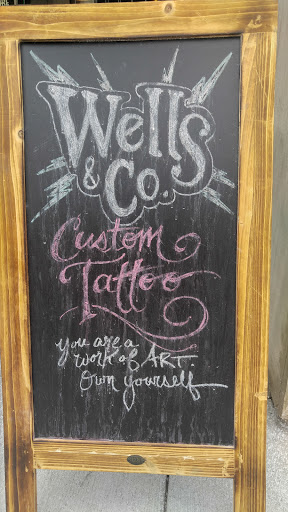 Wells
& Co.
Custom
Tattoo
you are a
work of ART
Own yourself